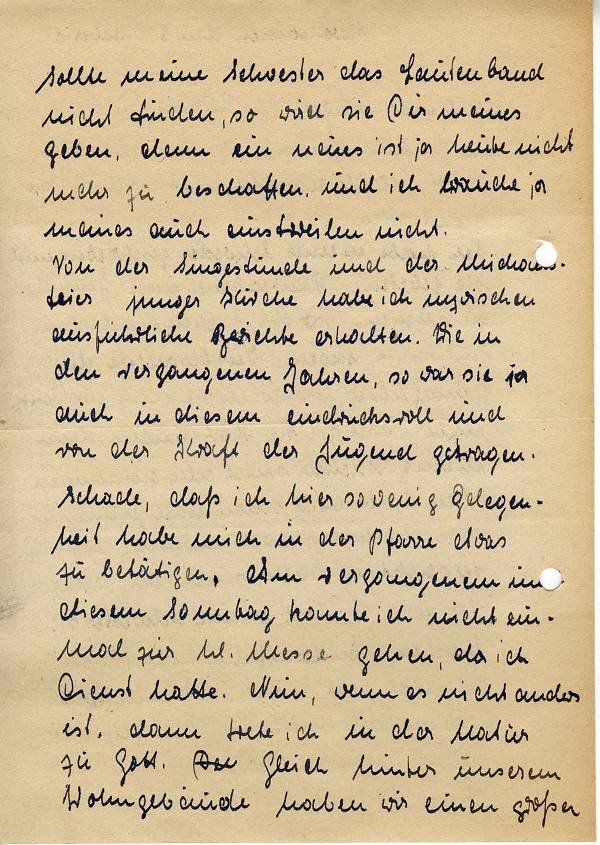 Sollte meine Schwester das Lautenband
nicht finden, so wird sie Dir meines
geben, denn ein neues ist ja heute nicht
mehr zu beschaffen und ich brauche ja
meines auch einstweilen nicht.
Von der Singestunde und der Michaels-
feier junger Kirche habe ich inzwischen
ausführliche Berichte erhalten. Wie in
den vergangenen Jahren, so war sie ja
auch in diesem eindrucksvoll und
von der Kraft der Jugend getragen.
Schade, daß ich hier so wenig Gelegen-
heit habe mich in der Pfarre etwas
zu betätigen. Am vergangenem und
diesem Sonntag konnte ich nicht ein-
mal zur hl. Messe gehen, da ich
Dienst hatte. Nun, wenn es nicht anders
ist, dann trete ich in der Natur
zu Gott. Gleich hinter unserem
Wohngebäude haben wir einen großen